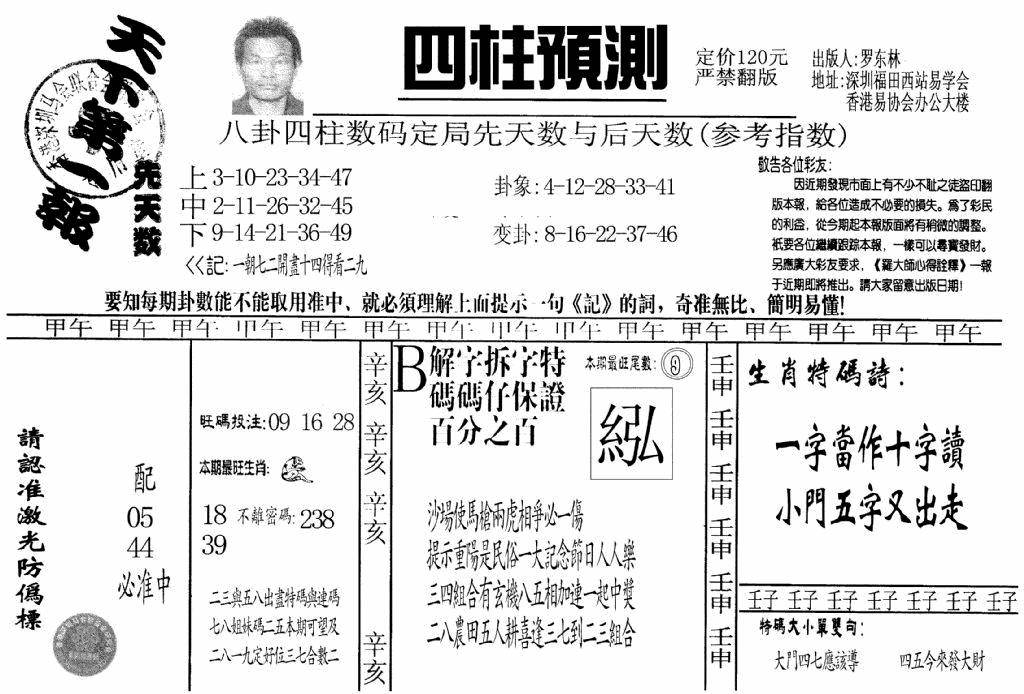 天下第一報
四柱預測
定价120元
严禁翻版
出版人:罗东林
地址:深圳福田西站易学会
香港易协会办公大楼
八卦四柱数码定局先天数与后天数(参考指数)
先天数
上3-10-23-34-47
中2-11-26-32-45
下9-14-21-36-49
<<記:一朝七二開盡十四得看二九
卦象:4-12-28-33-41
变卦:8-16-22-37-46
敬告各位彩友:
因近期發現市面上有不少不耻之徒盜印翻
版本報,給各位造成不必要的損失。爲了彩民
的利益,從今期起本報版面將有稍微的調整。
衹要各位繼續跟踪本報,一樣可以尋寶發財。
另應廣大彩友要求,《羅大師心得詮釋》一報
于近期即將推出。請大家留意出版日期!
要知每期卦數能不能取用准中、就必須理解上面提示一句《記》的詞,奇准無比、簡明易懂!
甲午 甲午 甲午 甲午 甲午 甲午 甲午 甲午 甲午 甲午 甲午 甲午 甲午 甲午 甲午
請認准激光防僞標
配
05
44
必准中
旺碼投注:09 16 28
本期最旺生肖:
18 不離密碼:238
39
二三與五八出盡特碼與連碼
七八姐妹碼二五本期可望及
二八一九定好位三七合數二
辛亥 辛亥 辛亥 辛亥
B解字拆字特
碼碼仔保證
百分之百
本期最旺尾數:9
紭
沙場使馬槍兩虎相爭必一傷
提示重陽是民俗一大記念節日人人樂
三四組合有玄機八五相加連一起中獎
二八農田五人耕喜逢三七到二三組合
壬申 壬申 壬申 壬申 壬申 壬申
生肖特碼詩:
一字當作十字讀
小門五字又出走
壬子 壬子 壬子 壬子 壬子 壬子 壬子
特碼大小單雙句:
大門四七應該導 四五今來發大財